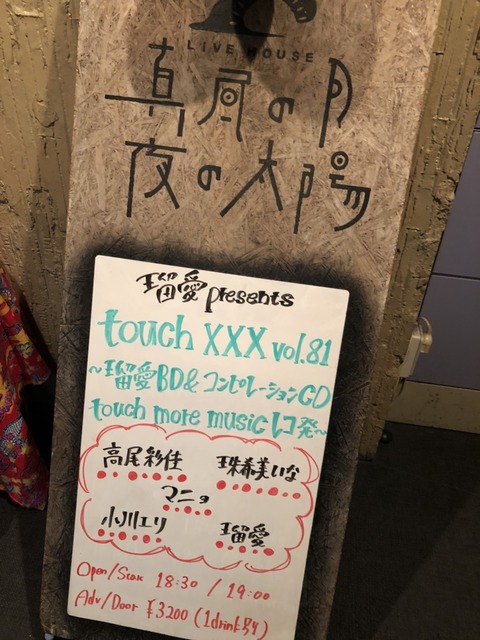 LIVE HOUSE
真昼の月
夜の太陽
瑠愛 presents
touch XXX vol.81
〜瑠愛BD&コンピレーションCD
touch more musicレコ発〜
高尾彩佳 珠希美いな
マニョ
小川エリ 瑠愛
Open/Start 18:30 / 19:00
Adv/Door ¥3200 (1drink付)